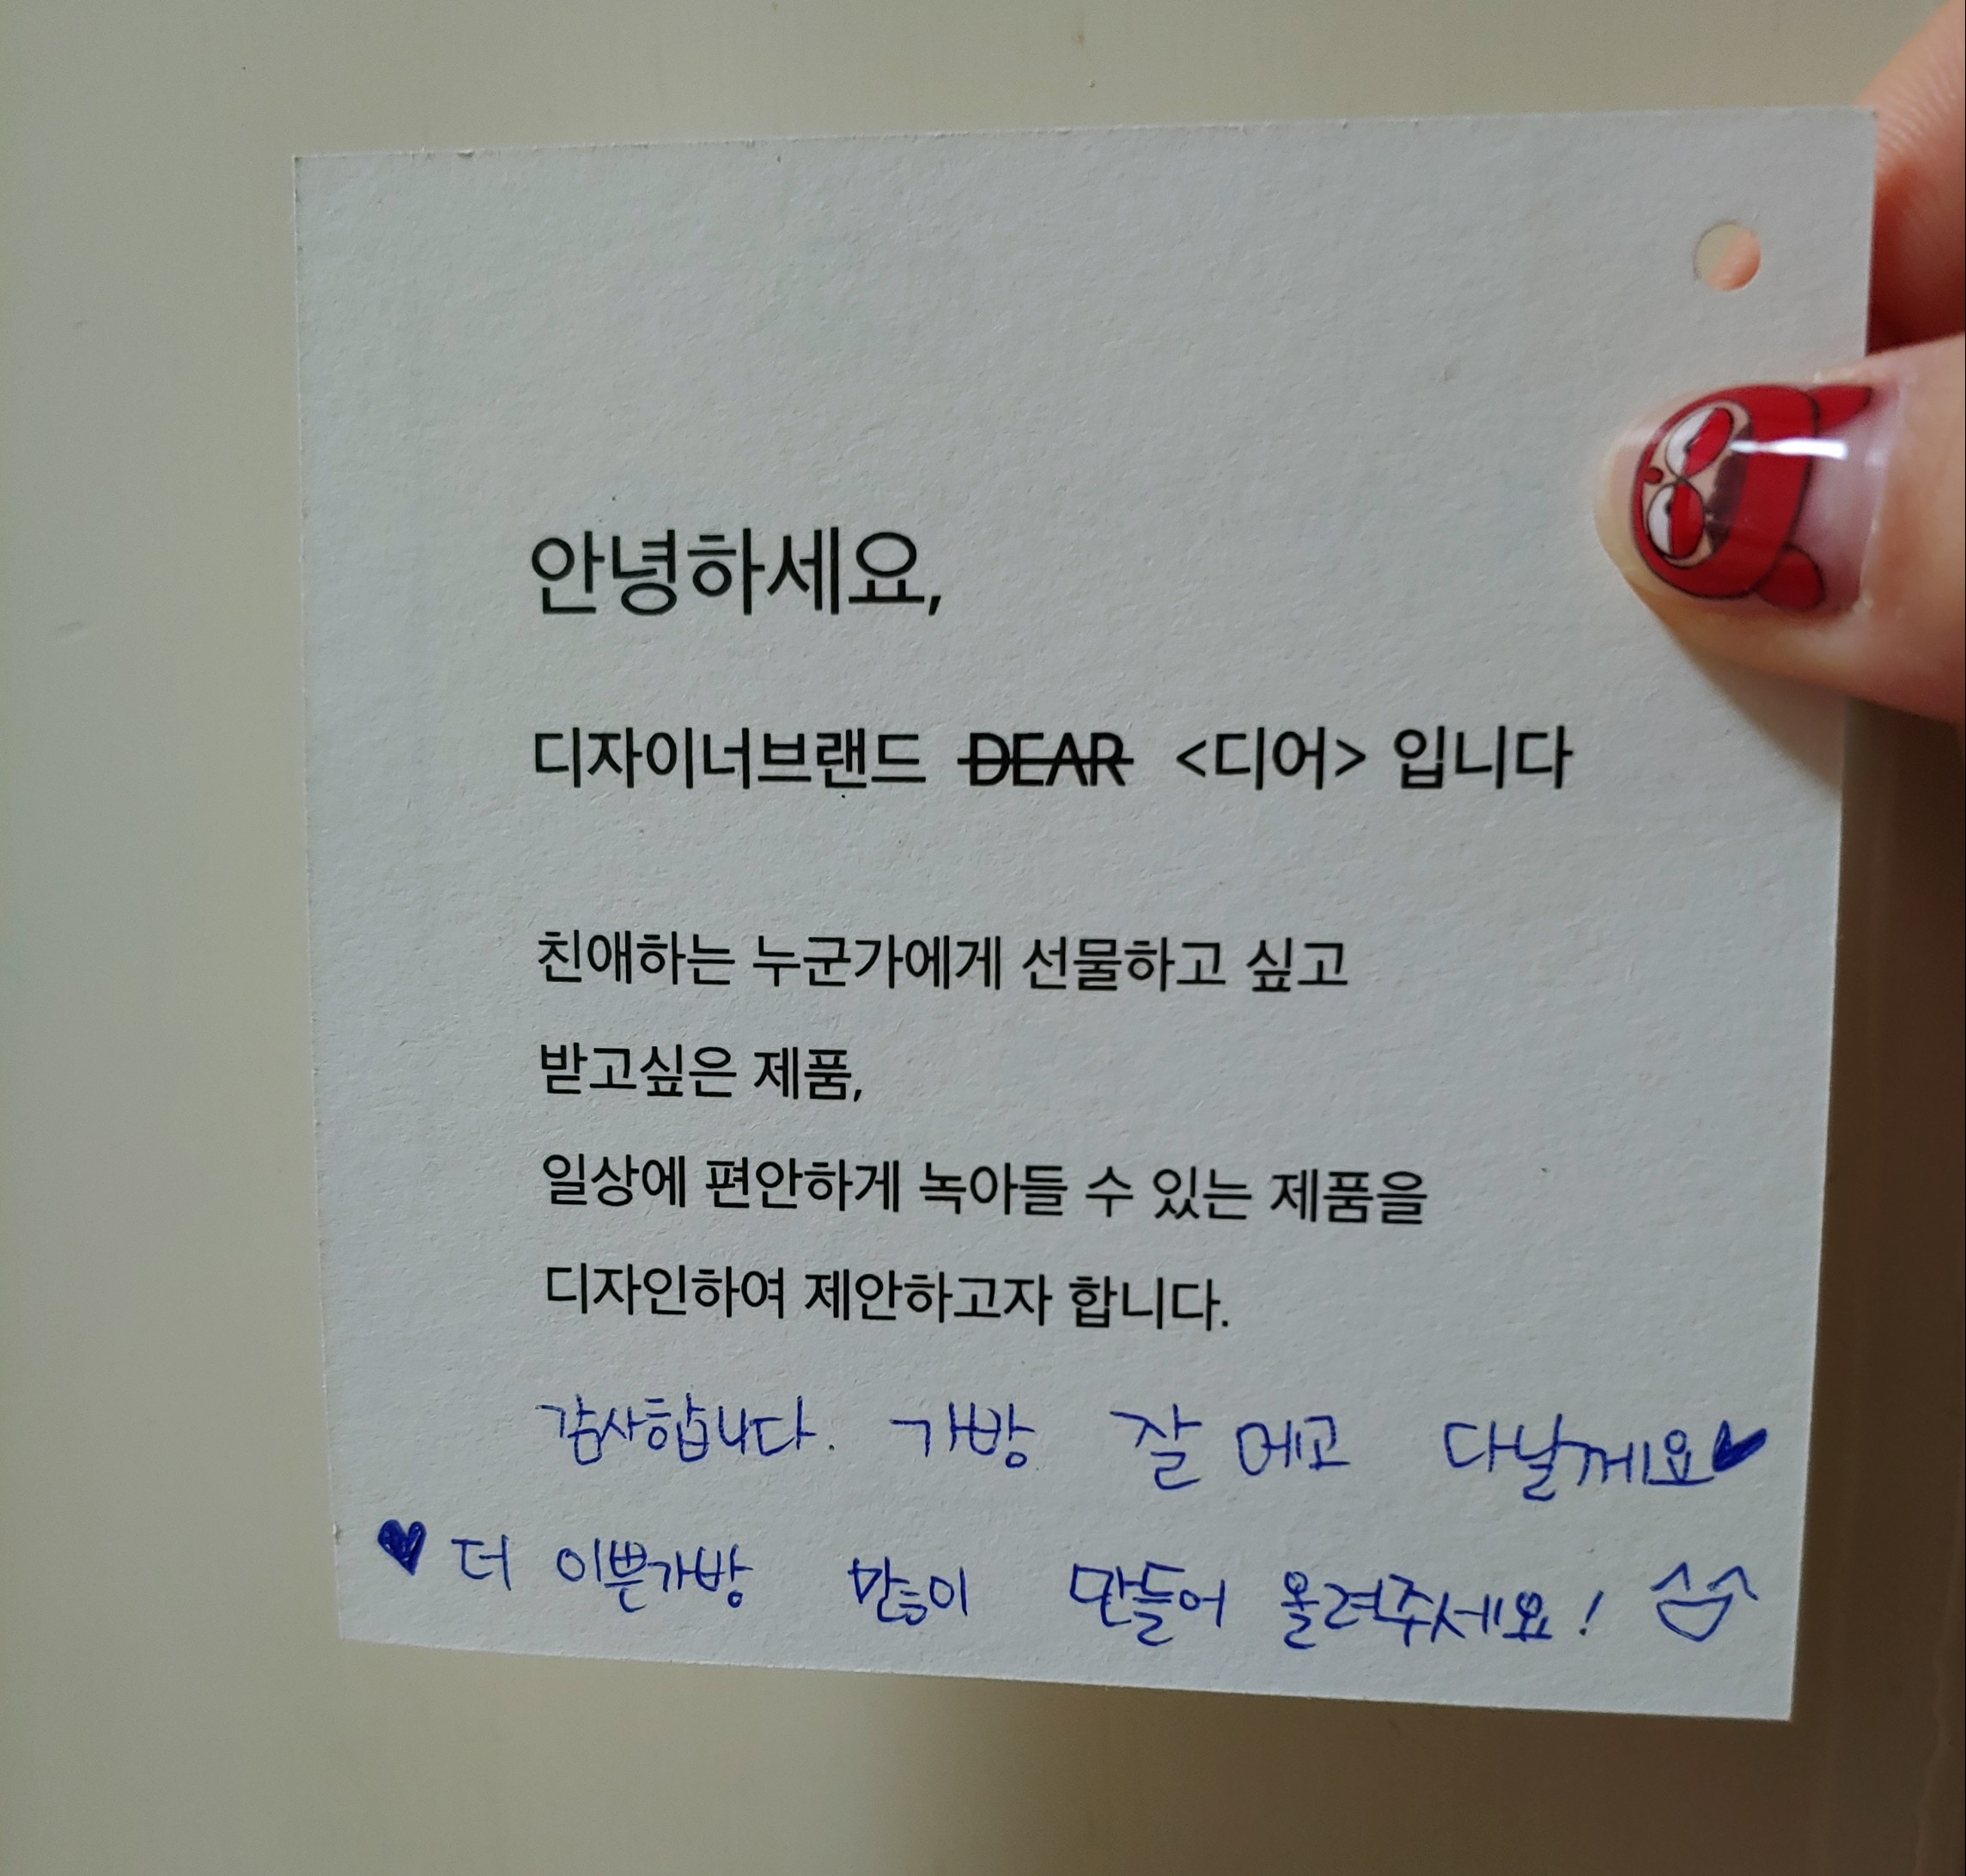 안녕하세요,
디자이너브랜드 DEAR <디어> 입니다
친애하는 누군가에게 선물하고 싶고
받고싶은 제품,
일상에 편안하게 녹아들 수 있는 제품을
디자인하여 제안하고자 합니다.
감사합니다. 가방 잘 메고 다닐께요♥
♥ 더 이쁜가방 많이 만들어 올려주세요! ^^